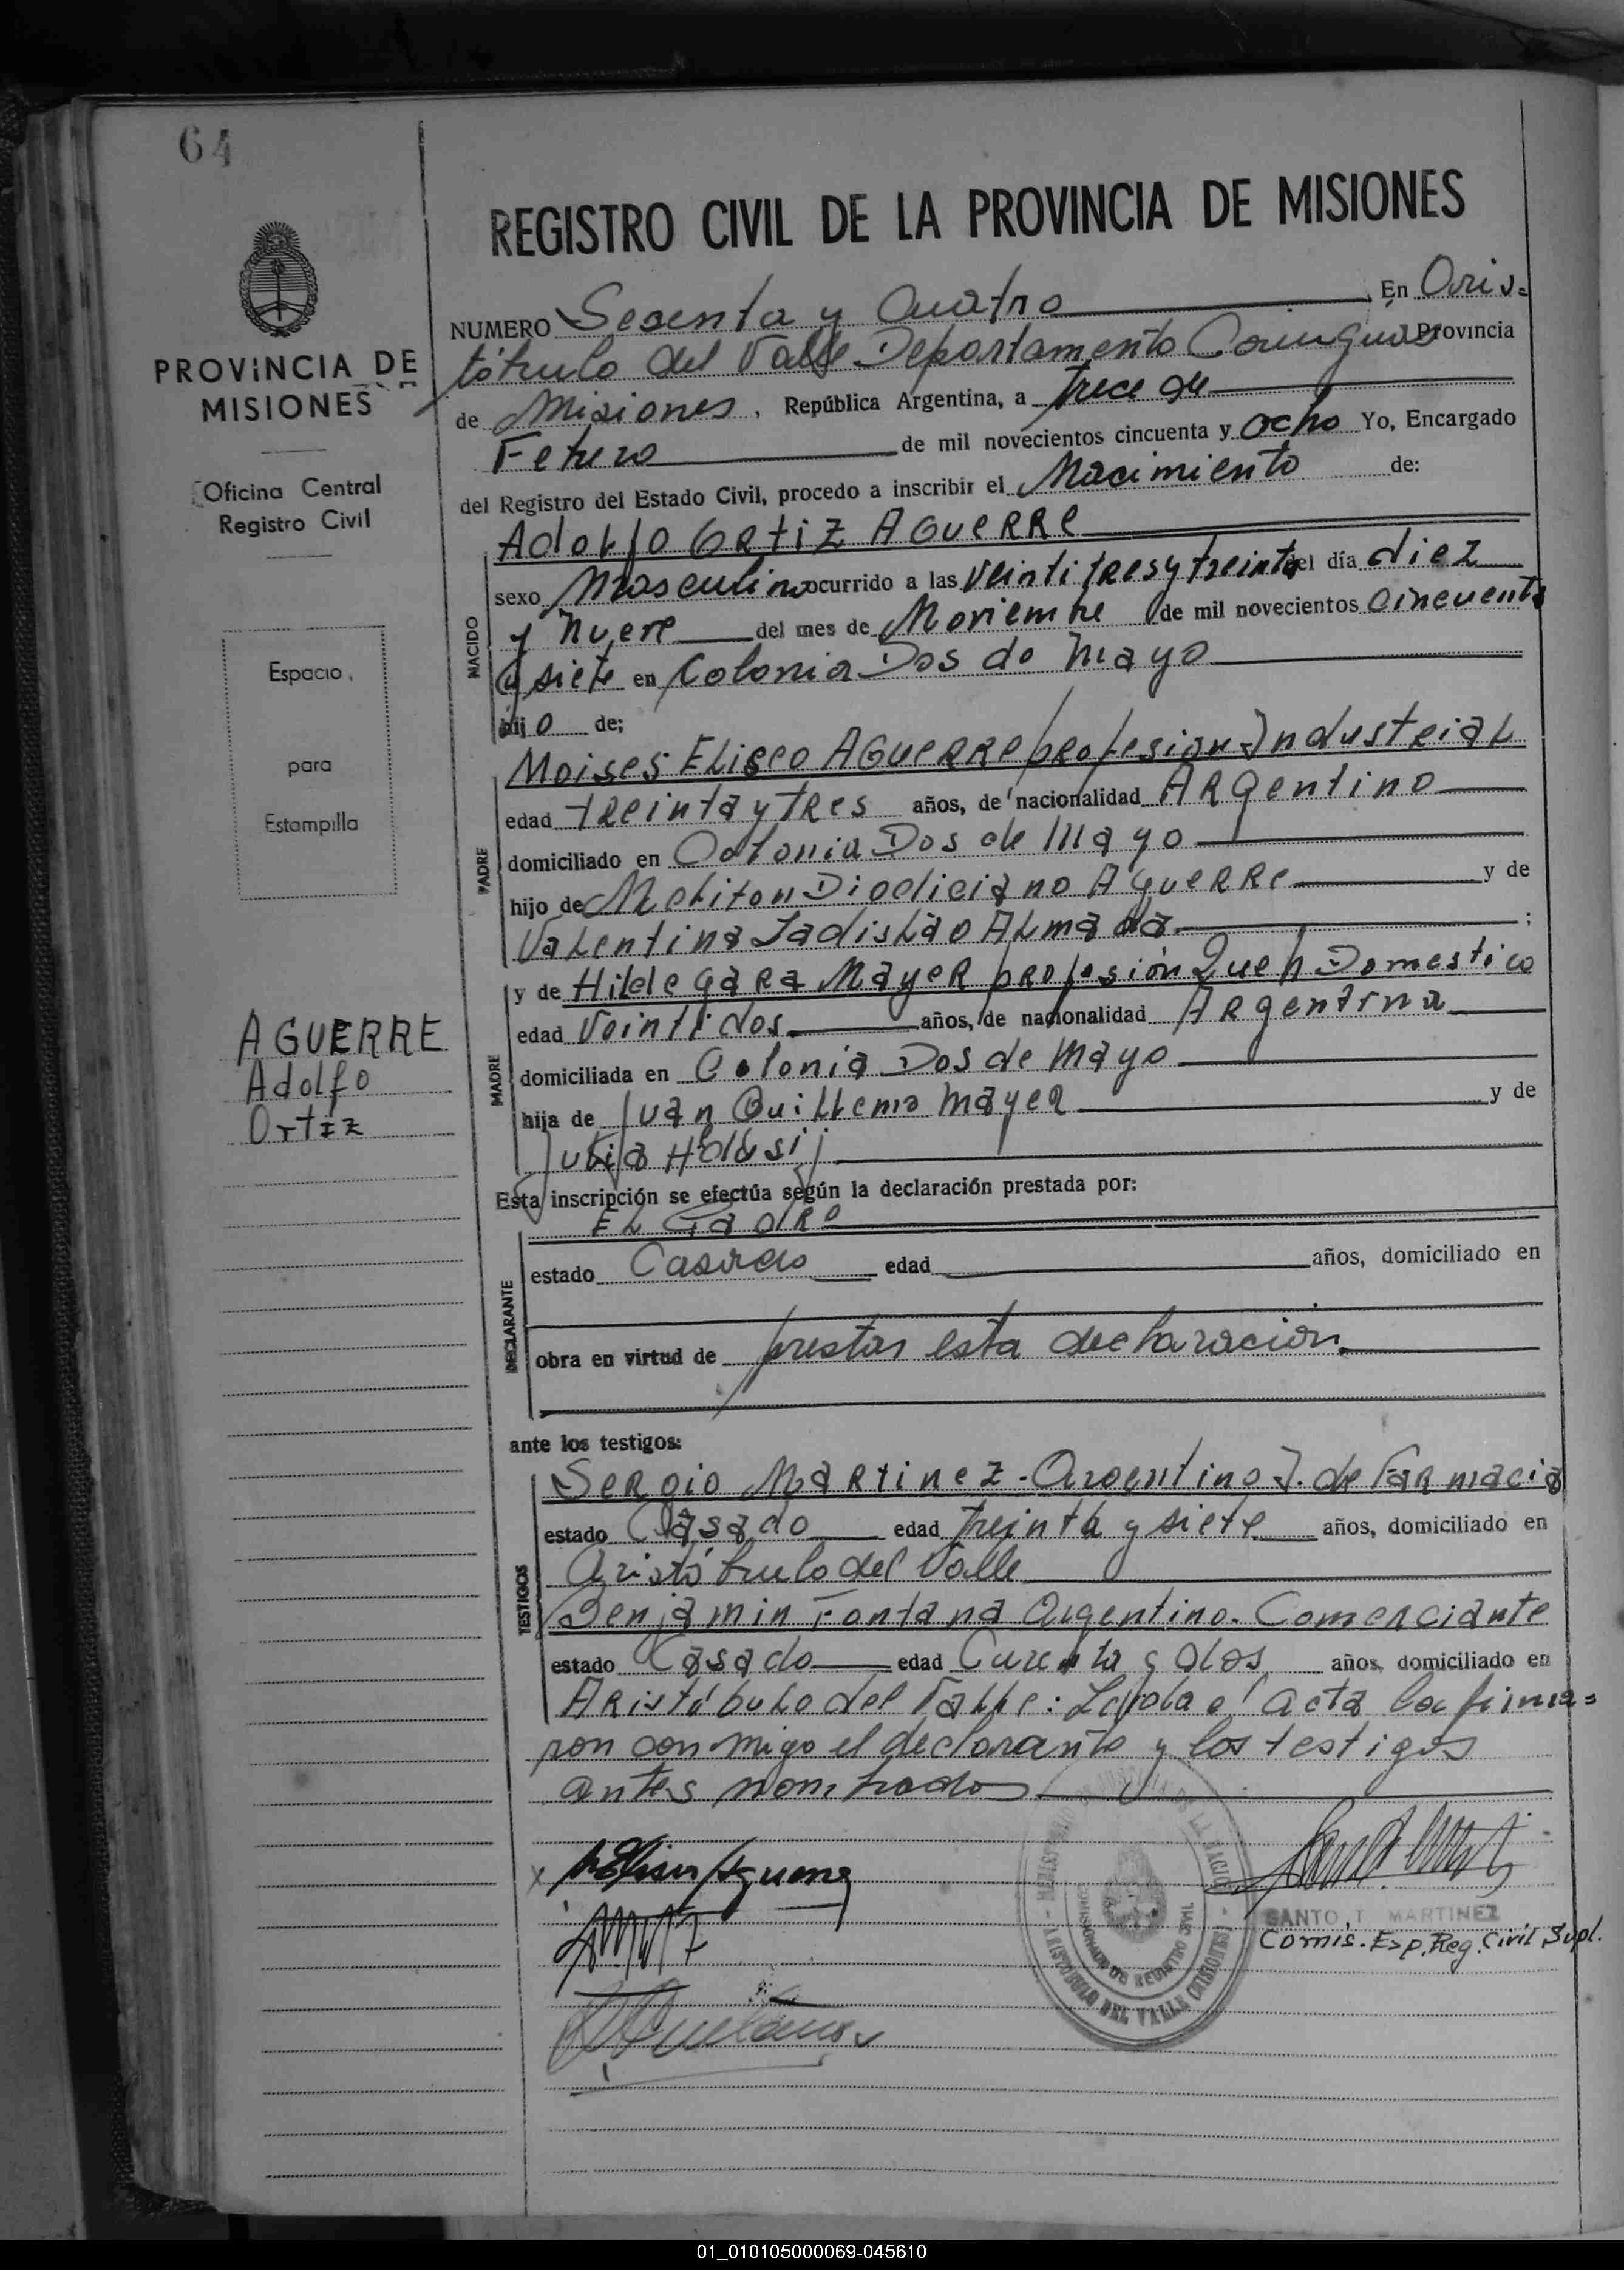 64
PROVINCIA DE
MISIONES
Oficina Central
Registro Civil
Espacio
para
Estampilla
AGUERRE
Adolfo
Ortiz
REGISTRO CIVIL DE LA PROVINCIA DE MISIONES
NUMERO Sesenta y Cuatro En Aris=
tótrulo del Valle Departamento Cainguas Provincia
de Misiones, República Argentina, a trece de
Febrero de mil novecientos cincuenta y ocho Yo, Encargado
del Registro del Estado Civil, procedo a inscribir el Nacimiento de:
Adolfo Ortiz AGUERRE
NACIDO
sexo Masculino ocurrido a las veintitres y treinta del día diez
y nueve del mes de Noviembre de mil novecientos cincuenta
y siete en Colonia Dos de Mayo
hijo de;
PADRE
Moises Eliseo AGUERRE profesion Industrial
edad treinta y tres años, de nacionalidad Argentino
domiciliado en Colonia Dos de Mayo
hijo de Meliton Diodiciano Aguerre y de
Valentina Ladislao Almada ;
MADRE
y de Hildegara Mayer profesión Queh Domestico
edad Veintidos años, de nacionalidad Argentina
domiciliada en Colonia Dos de Mayo
hija de Juan Guillermo Mayer y de
Julia
Esta inscripción se efectúa según la declaración prestada por:
El Padre
DECLARANTE
estado Casado edad años, domiciliado en
obra en virtud de prestar esta declaración.
ante los testigos:
TESTIGOS
Sergio Martinez - Argentino I. de Farmacia
estado Casado edad treinta y siete años, domiciliado en
Aristótrulo del Valle
Benjamin Fontana Argentino. Comerciante
estado Casado edad Curenta y dos años, domiciliado en
Aristóbulo del Valle: Leida el acta la firma=
ron conmigo el declarante y los testigos
antes nombrados
SANTO T. MARTINEZ
Comis. Esp. Reg. Civil Supl.
ARISTOBULO DEL VALLE (MISIONES)
01_010105000069-045610